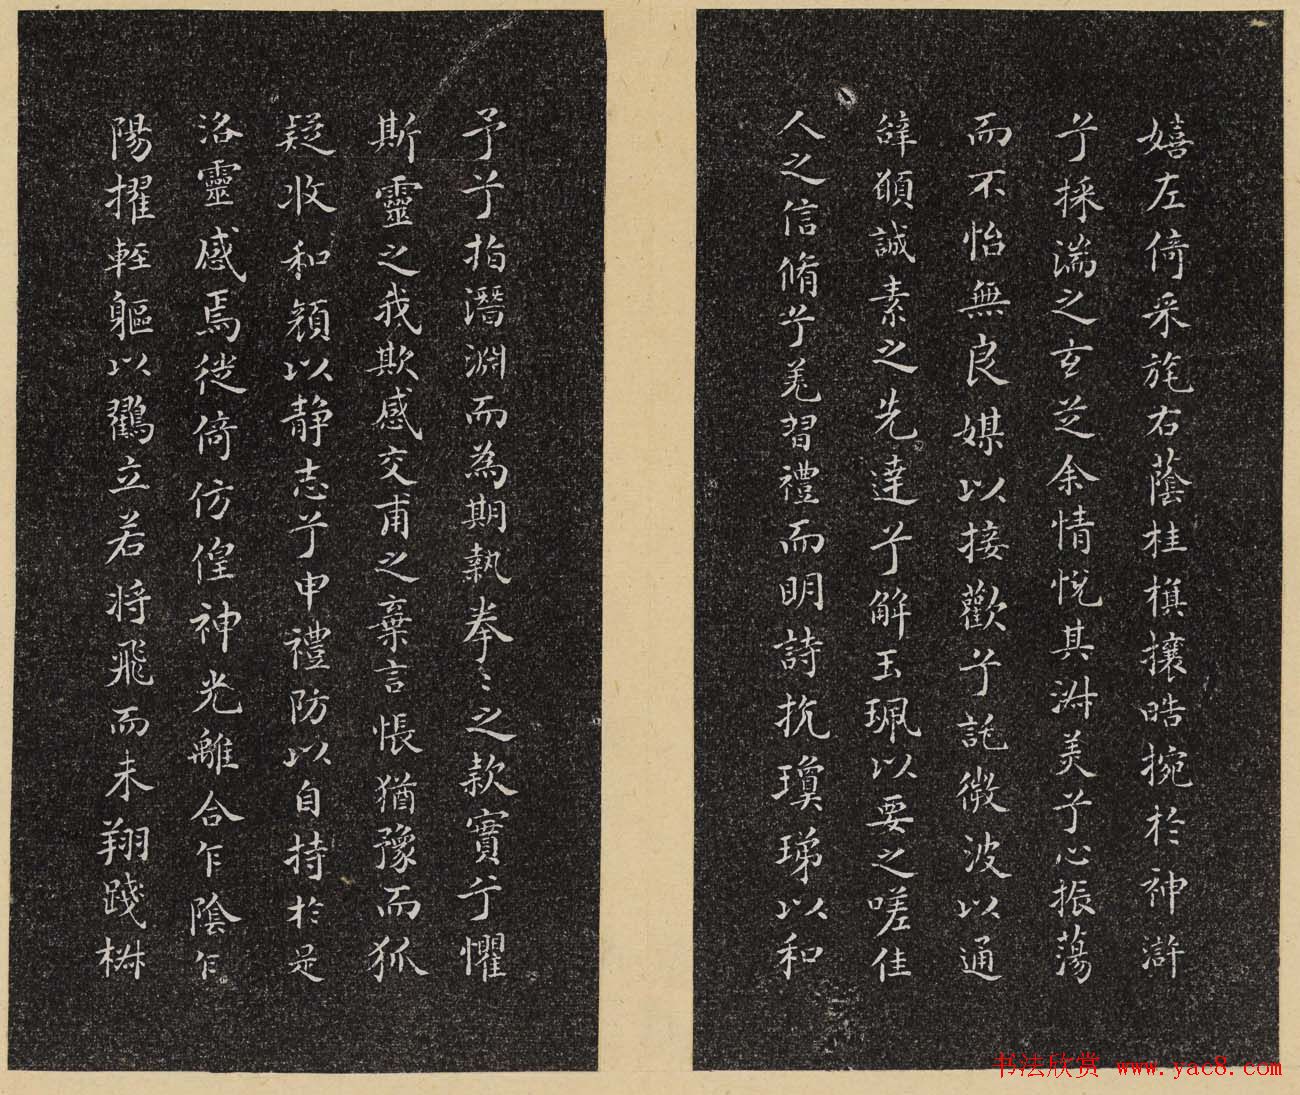 嬉左倚采旄右蔭桂旗攘皓捥於神滸
兮採湍之玄芝余情悅其淑美兮心振蕩
而不怡無良媒以接歡兮託微波以通
辭願誠素之先達兮解玉珮以要之嗟佳
人之信脩兮羌習禮而明詩抗瓊珶以和
予兮指潛淵而為期執拳〻之款實兮懼
斯靈之我欺感交甫之棄言悵猶豫而狐
疑收和顏以静志兮申禮防以自持於是
洛靈感焉徙倚仿偟神光離合乍陰乍
陽擢輕軀以鸖立若將飛而未翔踐椒
书法欣赏 www.yac8.com